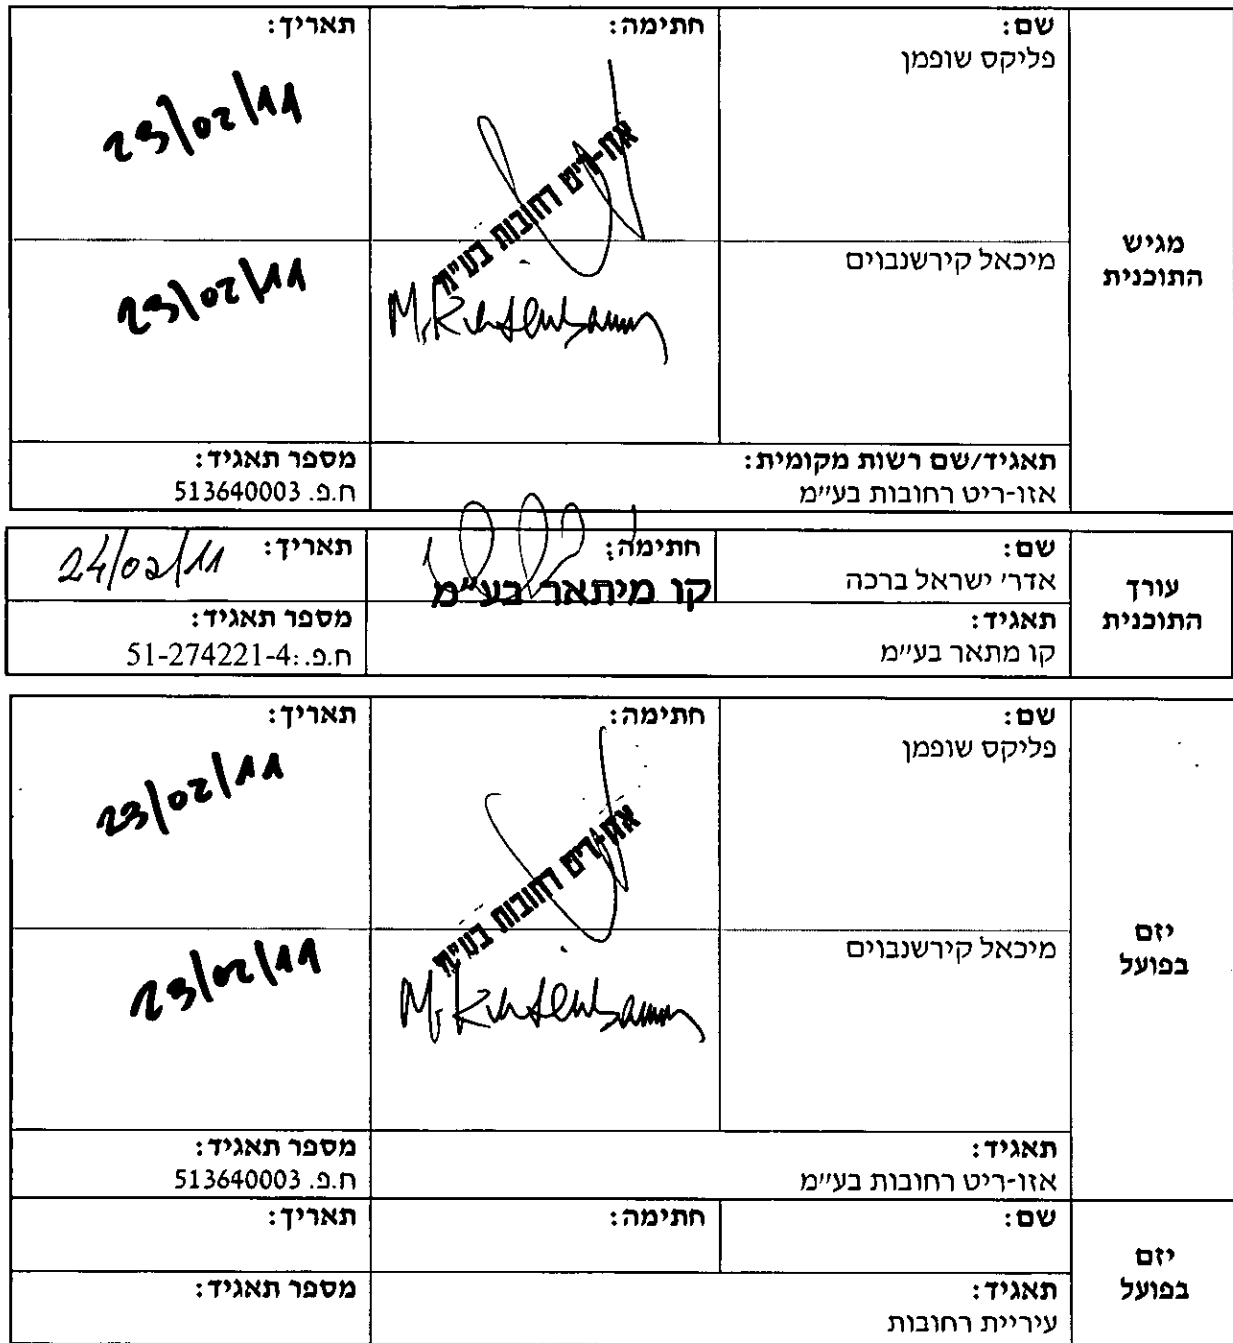 מגיש
התוכנית
שם:
פליקס שופמן
חתימה:
אזו-ריט רחובות בע"מ
תאריך:
23/02/11
מיכאל קירשנבוים
M. Kirshenbaum
23/02/11
תאגיד/שם רשות מקומית:
אזו-ריט רחובות בע"מ
מספר תאגיד:
ח.פ. 513640003
עורך
התוכנית
שם:
אדר' ישראל ברכה
חתימה:
קו מיתאר בע"מ
תאריך:
24/02/11
תאגיד:
קו מתאר בע"מ
מספר תאגיד:
ח.פ.:51-274221-4
יזם
בפועל
שם:
פליקס שופמן
חתימה:
אזו-ריט רחובות בע"מ
תאריך:
23/02/11
מיכאל קירשנבוים
M. Kirshenbaum
23/02/11
תאגיד:
אזו-ריט רחובות בע"מ
מספר תאגיד:
ח.פ. 513640003
יזם
בפועל
שם:
חתימה:
תאריך:
תאגיד:
עיריית רחובות
מספר תאגיד: